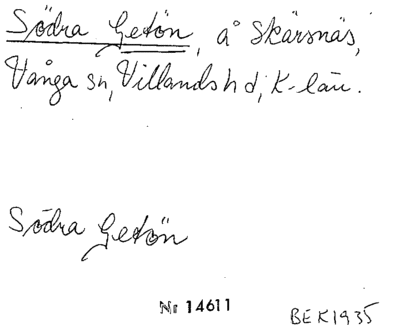 Södra Getön, å Skärsnäs,
Vånga sn, Villands hd, K-län.
Södra Getön
Nr 14611
BEK1935